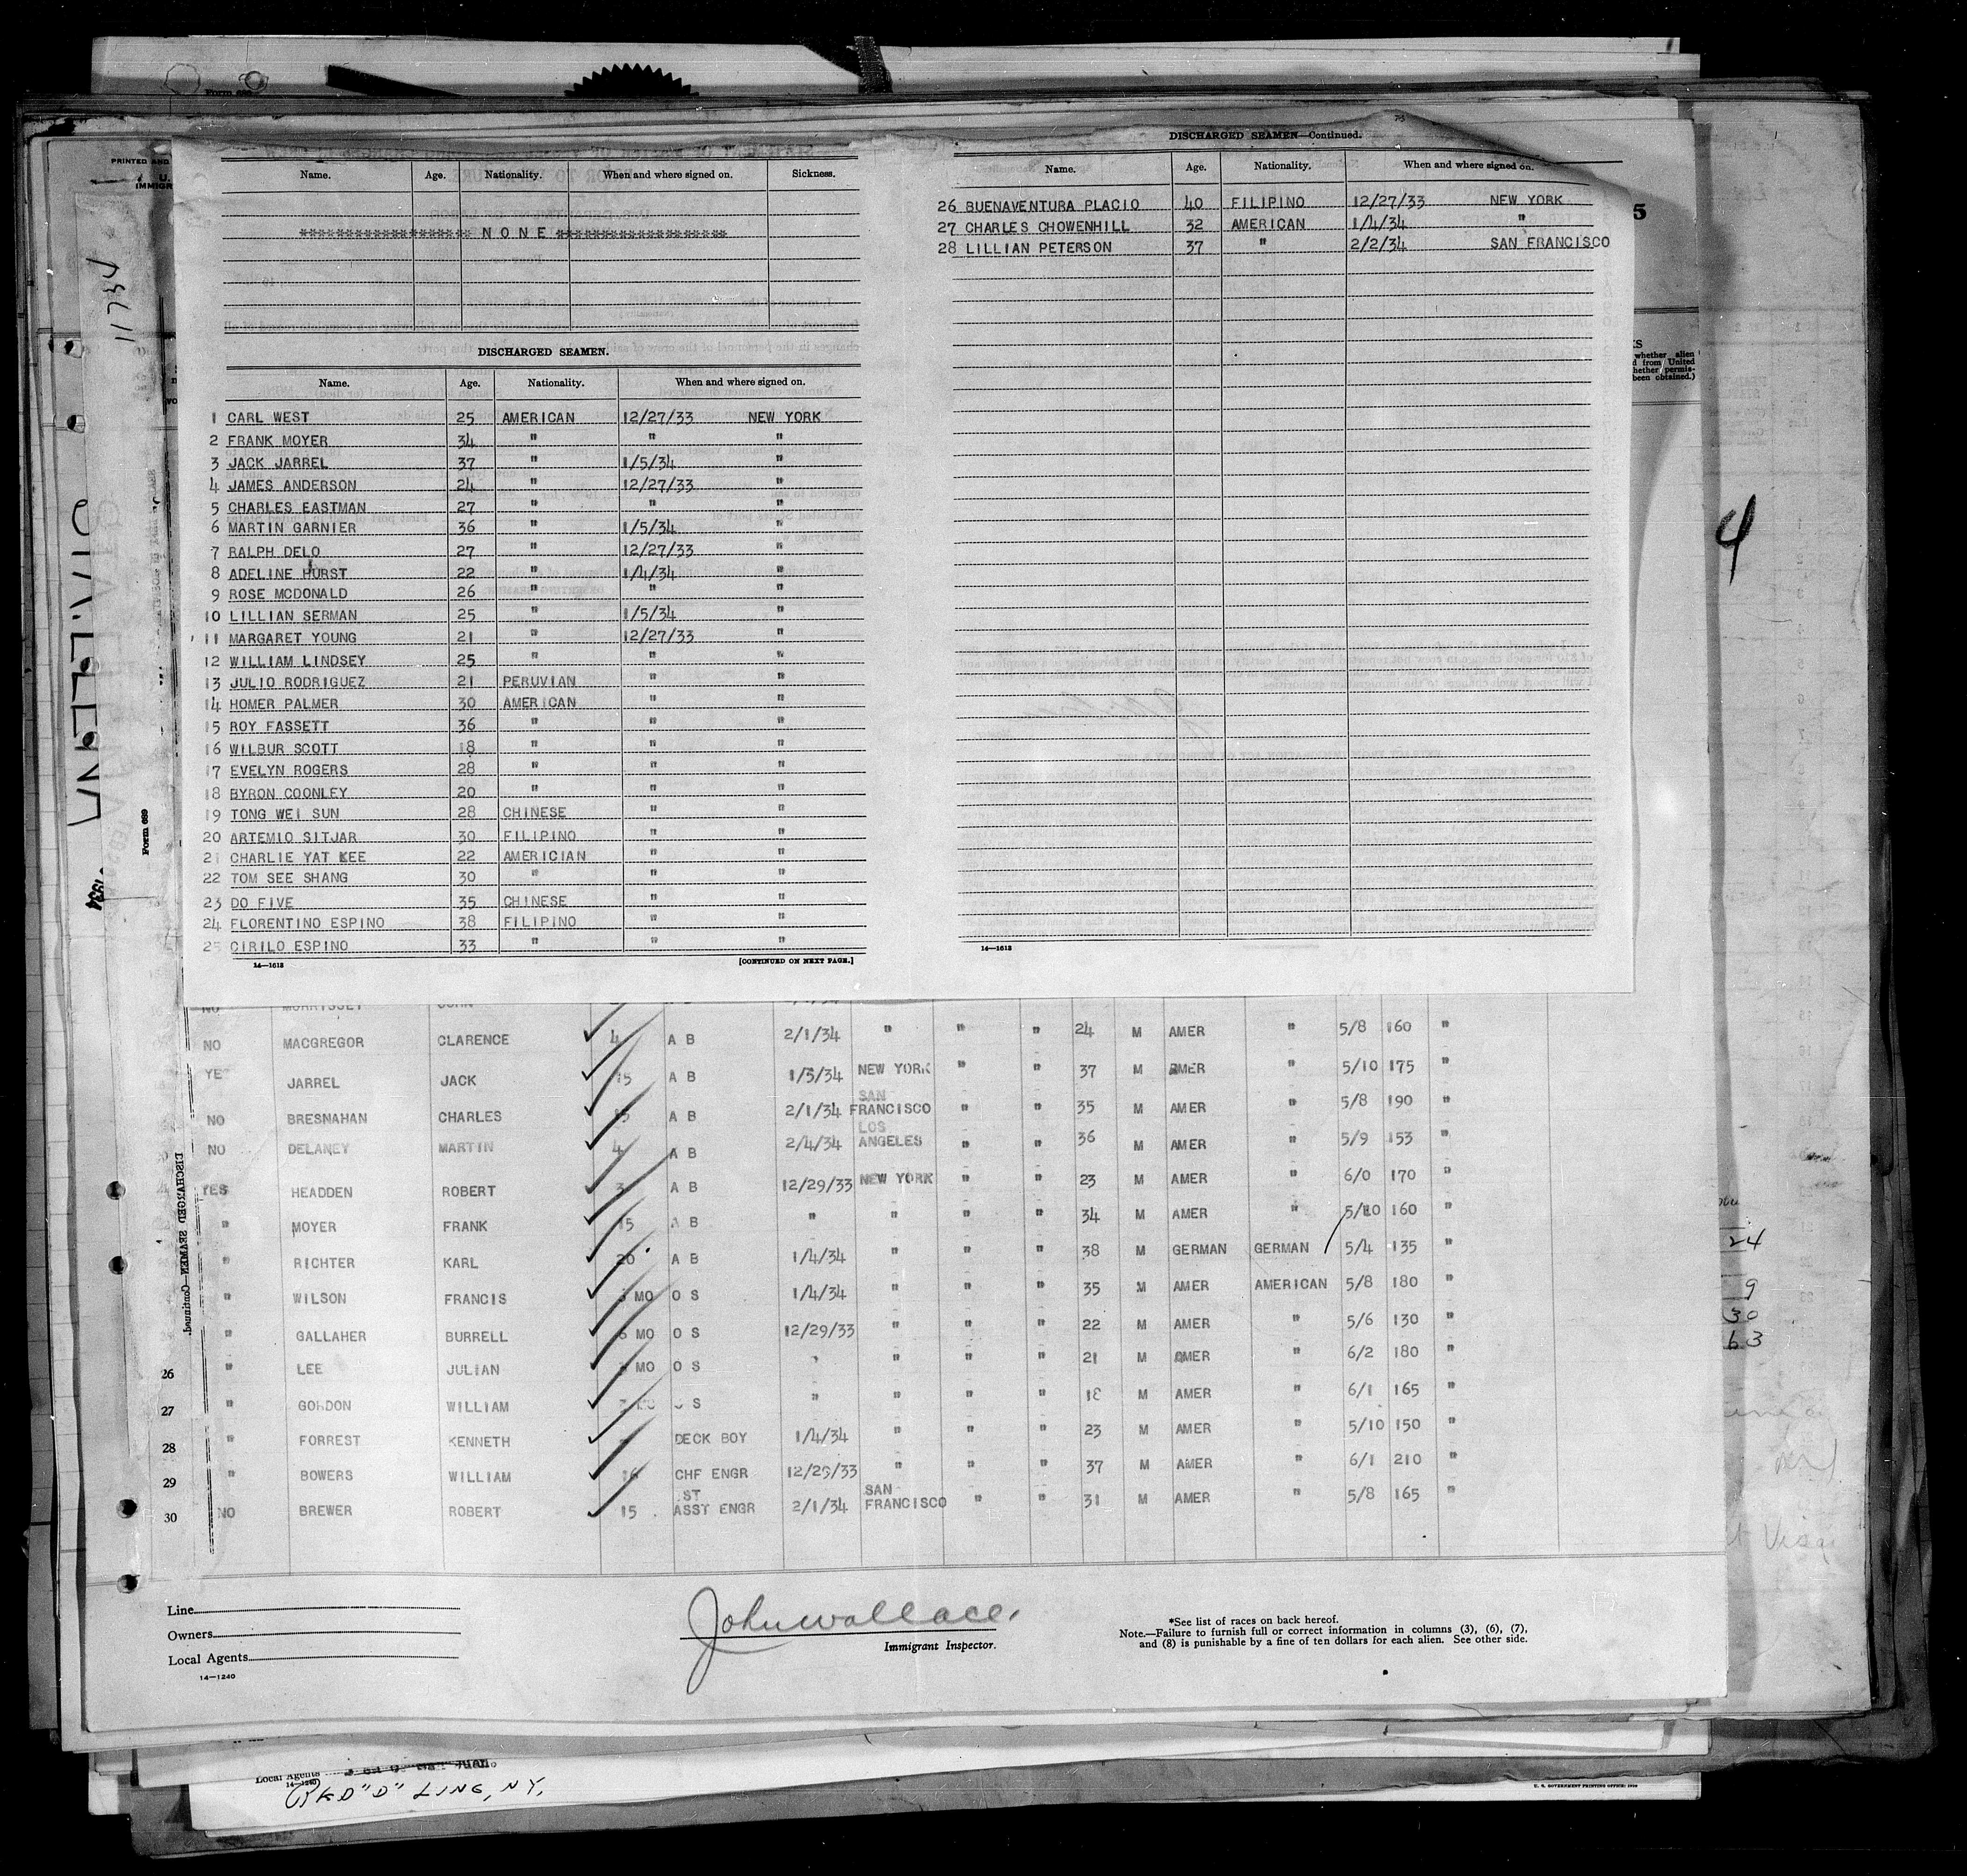 Form 689
PRINTED AND
U.
IMMIGR
Name. Age. Nationality. When and where signed on. Sickness.
****************** NONE ******************
DISCHARGED SEAMEN.
Name. Age. Nationality. When and where signed on.
1 CARL WEST 25 AMERICAN 12/27/33 NEW YORK
2 FRANK MOYER 34 " " "
3 JACK JARREL 37 " 1/5/34 "
4 JAMES ANDERSON 24 " 12/27/33 "
5 CHARLES EASTMAN 27 " " "
6 MARTIN GARNIER 36 " 1/5/34 "
7 RALPH DELO 27 " 12/27/33 "
8 ADELINE HURST 22 " 1/4/34 "
9 ROSE MCDONALD 26 " " "
10 LILLIAN SERMAN 25 " 1/5/34 "
11 MARGARET YOUNG 21 " 12/27/33 "
12 WILLIAM LINDSEY 25 " " "
13 JULIO RODRIGUEZ 21 PERUVIAN " "
14 HOMER PALMER 30 AMERICAN " "
15 ROY FASSETT 36 " " "
16 WILBUR SCOTT 18 " " "
17 EVELYN ROGERS 28 " " "
18 BYRON COONLEY 20 " " "
19 TONG WEI SUN 28 CHINESE " "
20 ARTEMIO SITJAR 30 FILIPINO " "
21 CHARLIE YAT KEE 22 AMERICIAN " "
22 TOM SEE SHANG 30 " " "
23 DO FIVE 35 CHINESE " "
24 FLORENTINO ESPINO 38 FILIPINO " "
25 CIRILO ESPINO 33 " " "
14—1613 [CONTINUED ON NEXT PAGE.]
DISCHARGED SEAMEN—Continued.
Name. Age. Nationality. When and where signed on.
26 BUENAVENTURA PLACIO 40 FILIPINO 12/27/33 NEW YORK
27 CHARLES CHOWENHILL 32 AMERICAN 1/4/34 "
28 LILLIAN PETERSON 37 " 2/2/34 SAN FRANCISCO
14—1613
5
KS
whether alien
d from United
hether permis-
been obtained.)
4
Form 689
1934
DISCHARGED SEAMEN—Continued.
NO MORRISSEY JOHN
NO MACGREGOR CLARENCE 4 A B 2/1/34 " " " 24 M AMER " 5/8 160 "
YES JARREL JACK 15 A B 1/5/34 NEW YORK " " 37 M AMER " 5/10 175 "
NO BRESNAHAN CHARLES 15 A B 2/1/34 SAN FRANCISCO " " 35 M AMER " 5/8 190 "
NO DELANEY MARTIN 4 A B 2/4/34 LOS ANGELES " " 36 M AMER " 5/9 153 "
YES HEADDEN ROBERT 3 A B 12/29/33 NEW YORK " " 23 M AMER " 6/0 170 "
" MOYER FRANK 15 A B " " " " 34 M AMER " 5/10 160 "
" RICHTER KARL 20 A B 1/4/34 " " " 38 M GERMAN GERMAN 5/4 135 "
" WILSON FRANCIS MO O S 1/4/34 " " " 35 M AMER AMERICAN 5/8 180 "
" GALLAHER BURRELL 6 MO O S 12/29/33 " " " 22 M AMER " 5/6 130 "
26 " LEE JULIAN MO O S " " " " 21 M AMER " 6/2 180 "
27 " GORDON WILLIAM S " " " " 18 M AMER " 6/1 165 "
28 " FORREST KENNETH DECK BOY 1/4/34 " " " 23 M AMER " 5/10 150 "
29 " BOWERS WILLIAM 16 CHF ENGR 12/29/33 " " " 37 M AMER " 6/1 210 "
30 NO BREWER ROBERT 15 1ST ASST ENGR 2/1/34 SAN FRANCISCO " " 31 M AMER " 5/8 165 "
24
9
30
63
Visa
Line
Owners
Local Agents
14—1240
John Wallace.
Immigrant Inspector.
*See list of races on back hereof.
Note.—Failure to furnish full or correct information in columns (3), (6), (7),
and (8) is punishable by a fine of ten dollars for each alien. See other side.
Local Agents Juan.
14—1240
"D" LINE, N.Y.
U. S. GOVERNMENT PRINTING OFFICE: 1929